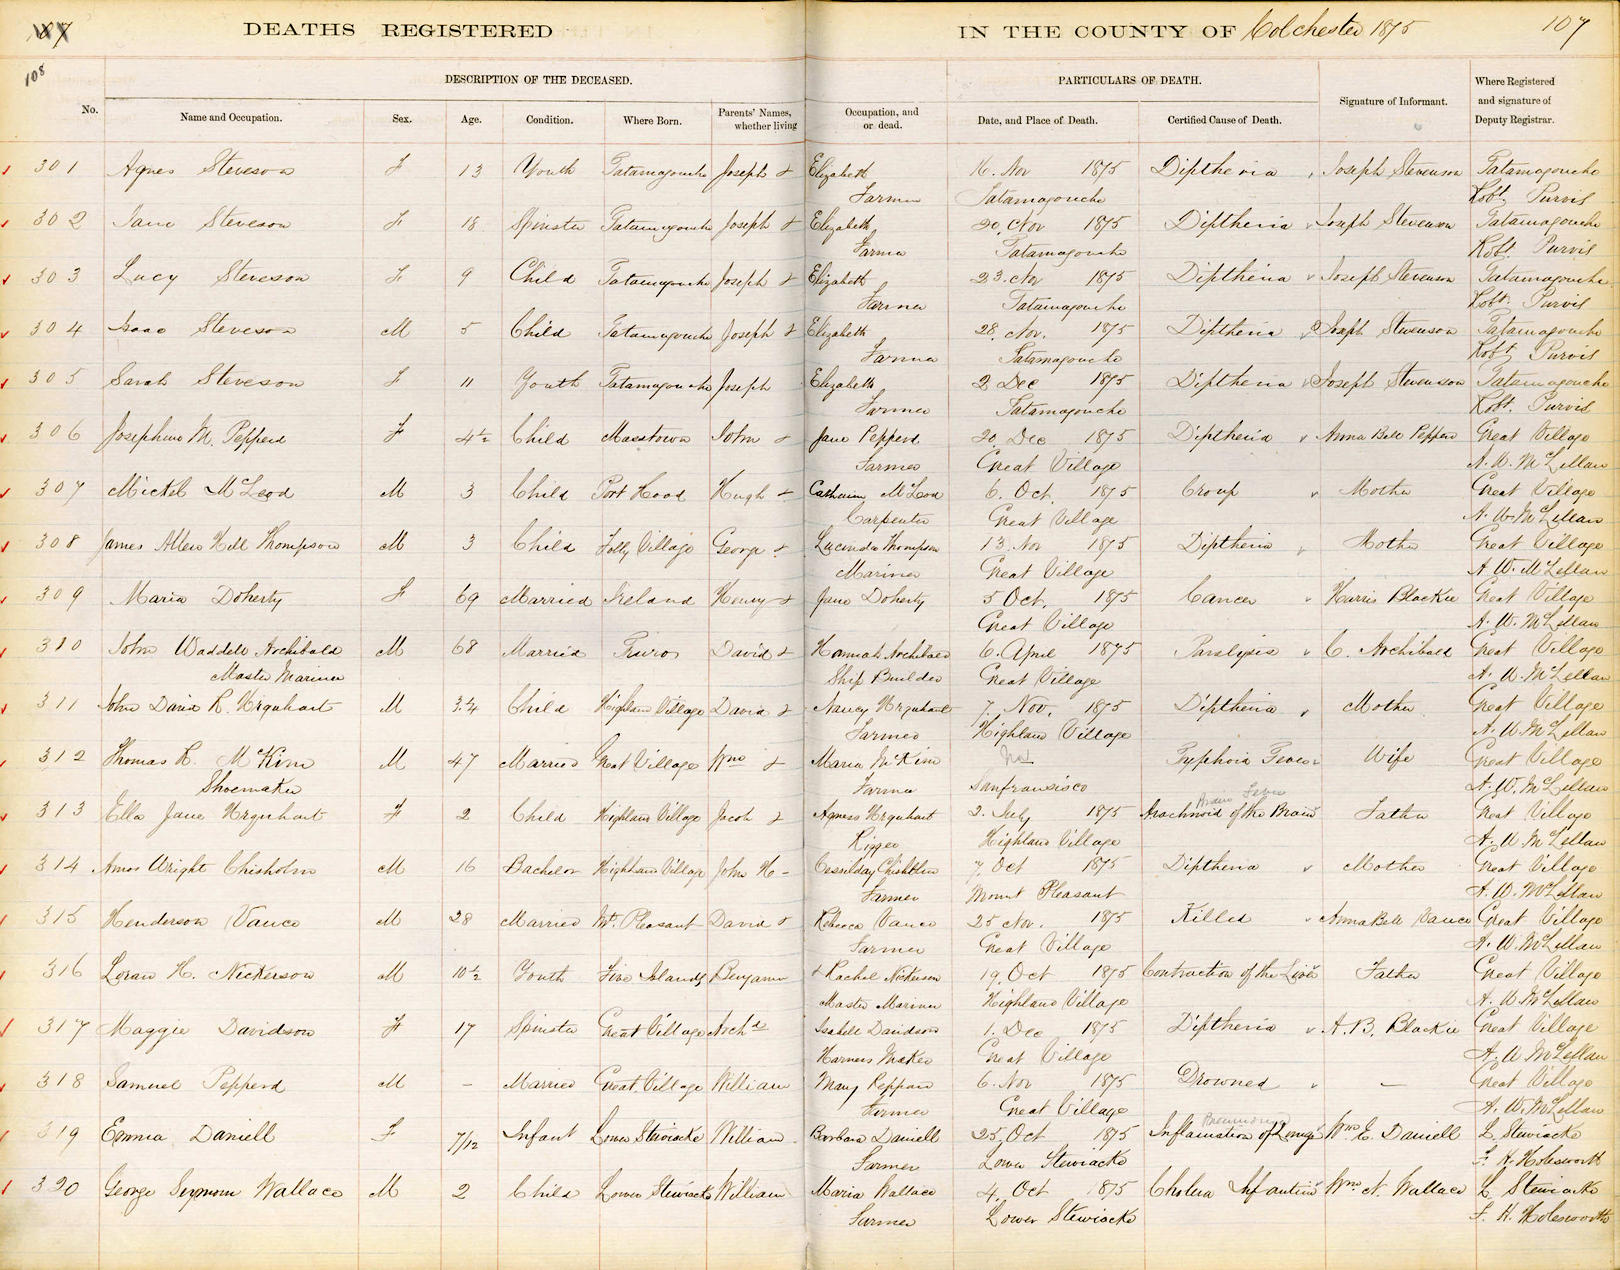 187 DEATHS REGISTERED IN THE COUNTY OF Colchester 1875 107
108
DESCRIPTION OF THE DECEASED. PARTICULARS OF DEATH. Where Registered
No. Name and Occupation. Sex. Age. Condition. Where Born. Parents' Names, whether living Occupation, and or dead. Date, and Place of Death. Certified Cause of Death. Signature of Informant. and signature of Deputy Registrar.
301 Agnes Steveson F 13 Youth Tatamagouche Joseph + Elizabeth 16. Nov 1875 Diptheria Joseph Stevenson Tatamagouche
Farmer Tatamagouche Robt. Purvis
302 Jane Steveson F 18 Spinster Tatamagouche Joseph + Elizabeth 20. Nov 1875 Diptheria Joseph Stevenson Tatamagouche
Farmer Tatamagouche Robt. Purvis
303 Lucy Steveson F 9 Child Tatamagouche Joseph + Elizabeth 23. Nov 1875 Diptheria Joseph Stevenson Tatamagouche
Farmer Tatamagouche Robt. Purvis
304 Isaac Steveson M 5 Child Tatamagouche Joseph + Elizabeth 28. Nov. 1875 Diptheria Joseph Stevenson Tatamagouche
Farmer Tatamagouche Robt. Purvis
305 Sarah Steveson F 11 Youth Tatamagouche Joseph Elizabeth 2 Dec 1875 Diptheria Joseph Stevenson Tatamagouche
Farmer Tatamagouche Robt. Purvis
306 Josephine M. Pepperd F 4½ Child Masstown John + Jane Pepperd 20. Dec 1875 Diptheria Anna Bell Pepperd Great Village
Farmer Great Village A. W. McLellan
307 Mickel McLeod M 3 Child Port Hood Hugh + McLeod 6. Oct. 1875 Croup Mother Great Village
Carpenter Great Village A. W. McLellan
308 James Allen Hill Thompson M 3 Child Folly Village George + Lucinda Thompson 13. Nov 1875 Diptheria Mother Great Village
Mariner Great Village A. W. McLellan
309 Maria Doherty F 69 Married Ireland Henry + Jane Doherty 5 Oct. 1875 Cancer Harris Blackie Great Village
Great Village A. W. McLellan
310 John Waddell Archibald M 68 Married Truro David + Hannah Archibald 6. April 1875 Paralysis C. Archibald Great Village
Master Mariner Ship Builder Great Village A. W. McLellan
311 John David R. Urquhart M 3¾ Child Highland Village David + Nancy Urquhart 7. Nov. 1875 Diptheria Mother Great Village
Farmer Highland Village A. W. McLellan
312 Thomas R. McKim M 47 Married Great Village Wm + Maria McKim Typhoid Fever Wife Great Village
Shoemaker Farmer Sanfransisco A. W. McLellan
Brain Fever
313 Ella Jane Urquhart F 2 Child Highland Village Jacob + Agness Urquhart 2. July 1875 Arachnoid of the Brain Father Great Village
Rigger Highland Village A. W. McLellan
314 Amos Wright Chisholm M 16 Bachelor Highland Village John H - 7. Oct 1875 Diptheria Mother Great Village
Farmer Mount Pleasant A. W. McLellan
315 Henderson Vance M 28 Married Mt. Pleasant David + Rebecca Vance 25 Nov. 1875 Killed Anna Bell Vance Great Village
Farmer Great Village A. W. McLellan
316 Loran H. Nickerson M 10½ Youth Five Islands Benjamin + Rachel Nickerson 19. Oct 1875 Contraction of the Liver Father Great Village
Master Mariner Highland Village A. W. McLellan
317 Maggie Davidson F 17 Spinster Great Village Archd Isabell Davidson 1. Dec 1875 Diptheria A. B. Blackie Great Village
Harness Maker Great Village A. W. McLellan
318 Samuel Pepperd M - Married Great Village William Mary Peppard 6. Nov 1875 Drowned - Great Village
Farmer Great Village A. W. McLellan
319 Emma Daniell F 7/12 Infant Lower Stewiacke William Barbara Daniell 25. Oct 1875 Inflamation of Lungs Wm E. Daniell L. Stewiacke
Farmer Lower Stewiacke F. H. Holesworth
320 George Seymour Wallace M 2 Child Lower Stewiacke William Maria Wallace 4. Oct 1875 Cholera Infantum Wm N. Wallace L Stewiacke
Farmer Lower Stewiacke F. H. Holesworth